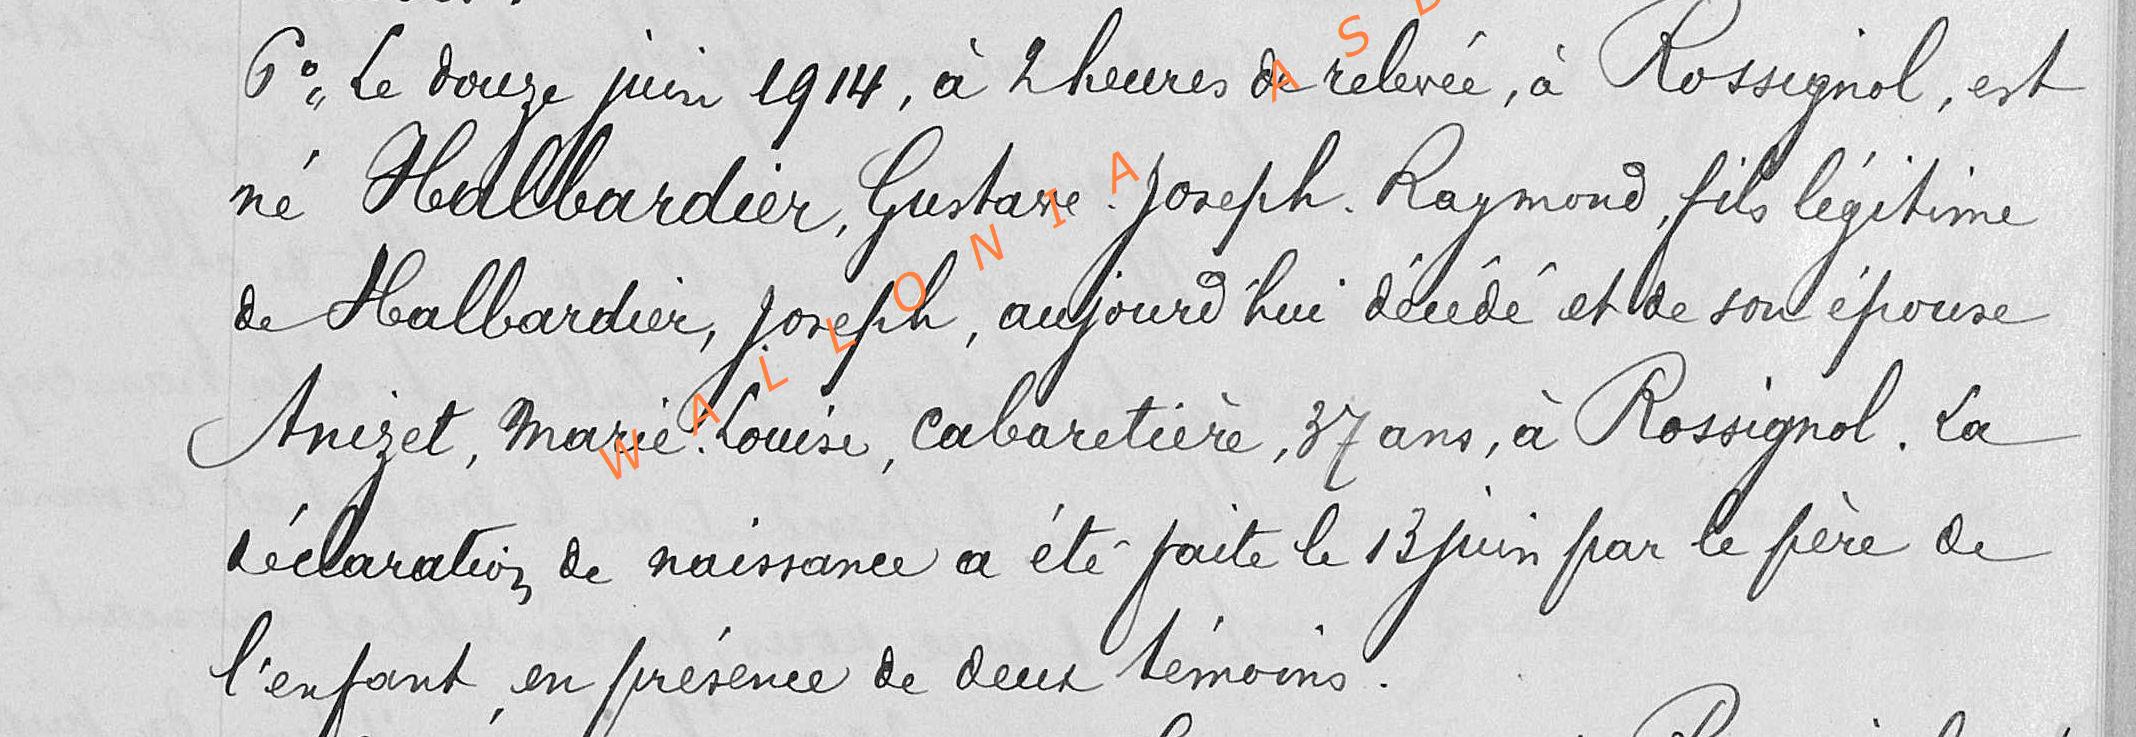 6°„ Le douze juin 1914, à 2 heures de relevée, à Rossignol, est
né Halbardier, Gustave-Joseph-Raymond, fils légitime
de Halbardier, Joseph, aujourd'hui décédé et de son épouse
Anizet, Marie-Louise, cabaretière, 37 ans, à Rossignol. La
déclaration de naissance a été faite le 13 juin par le père de
l'enfant, en présence de deux témoins.
WALLONIA ASD